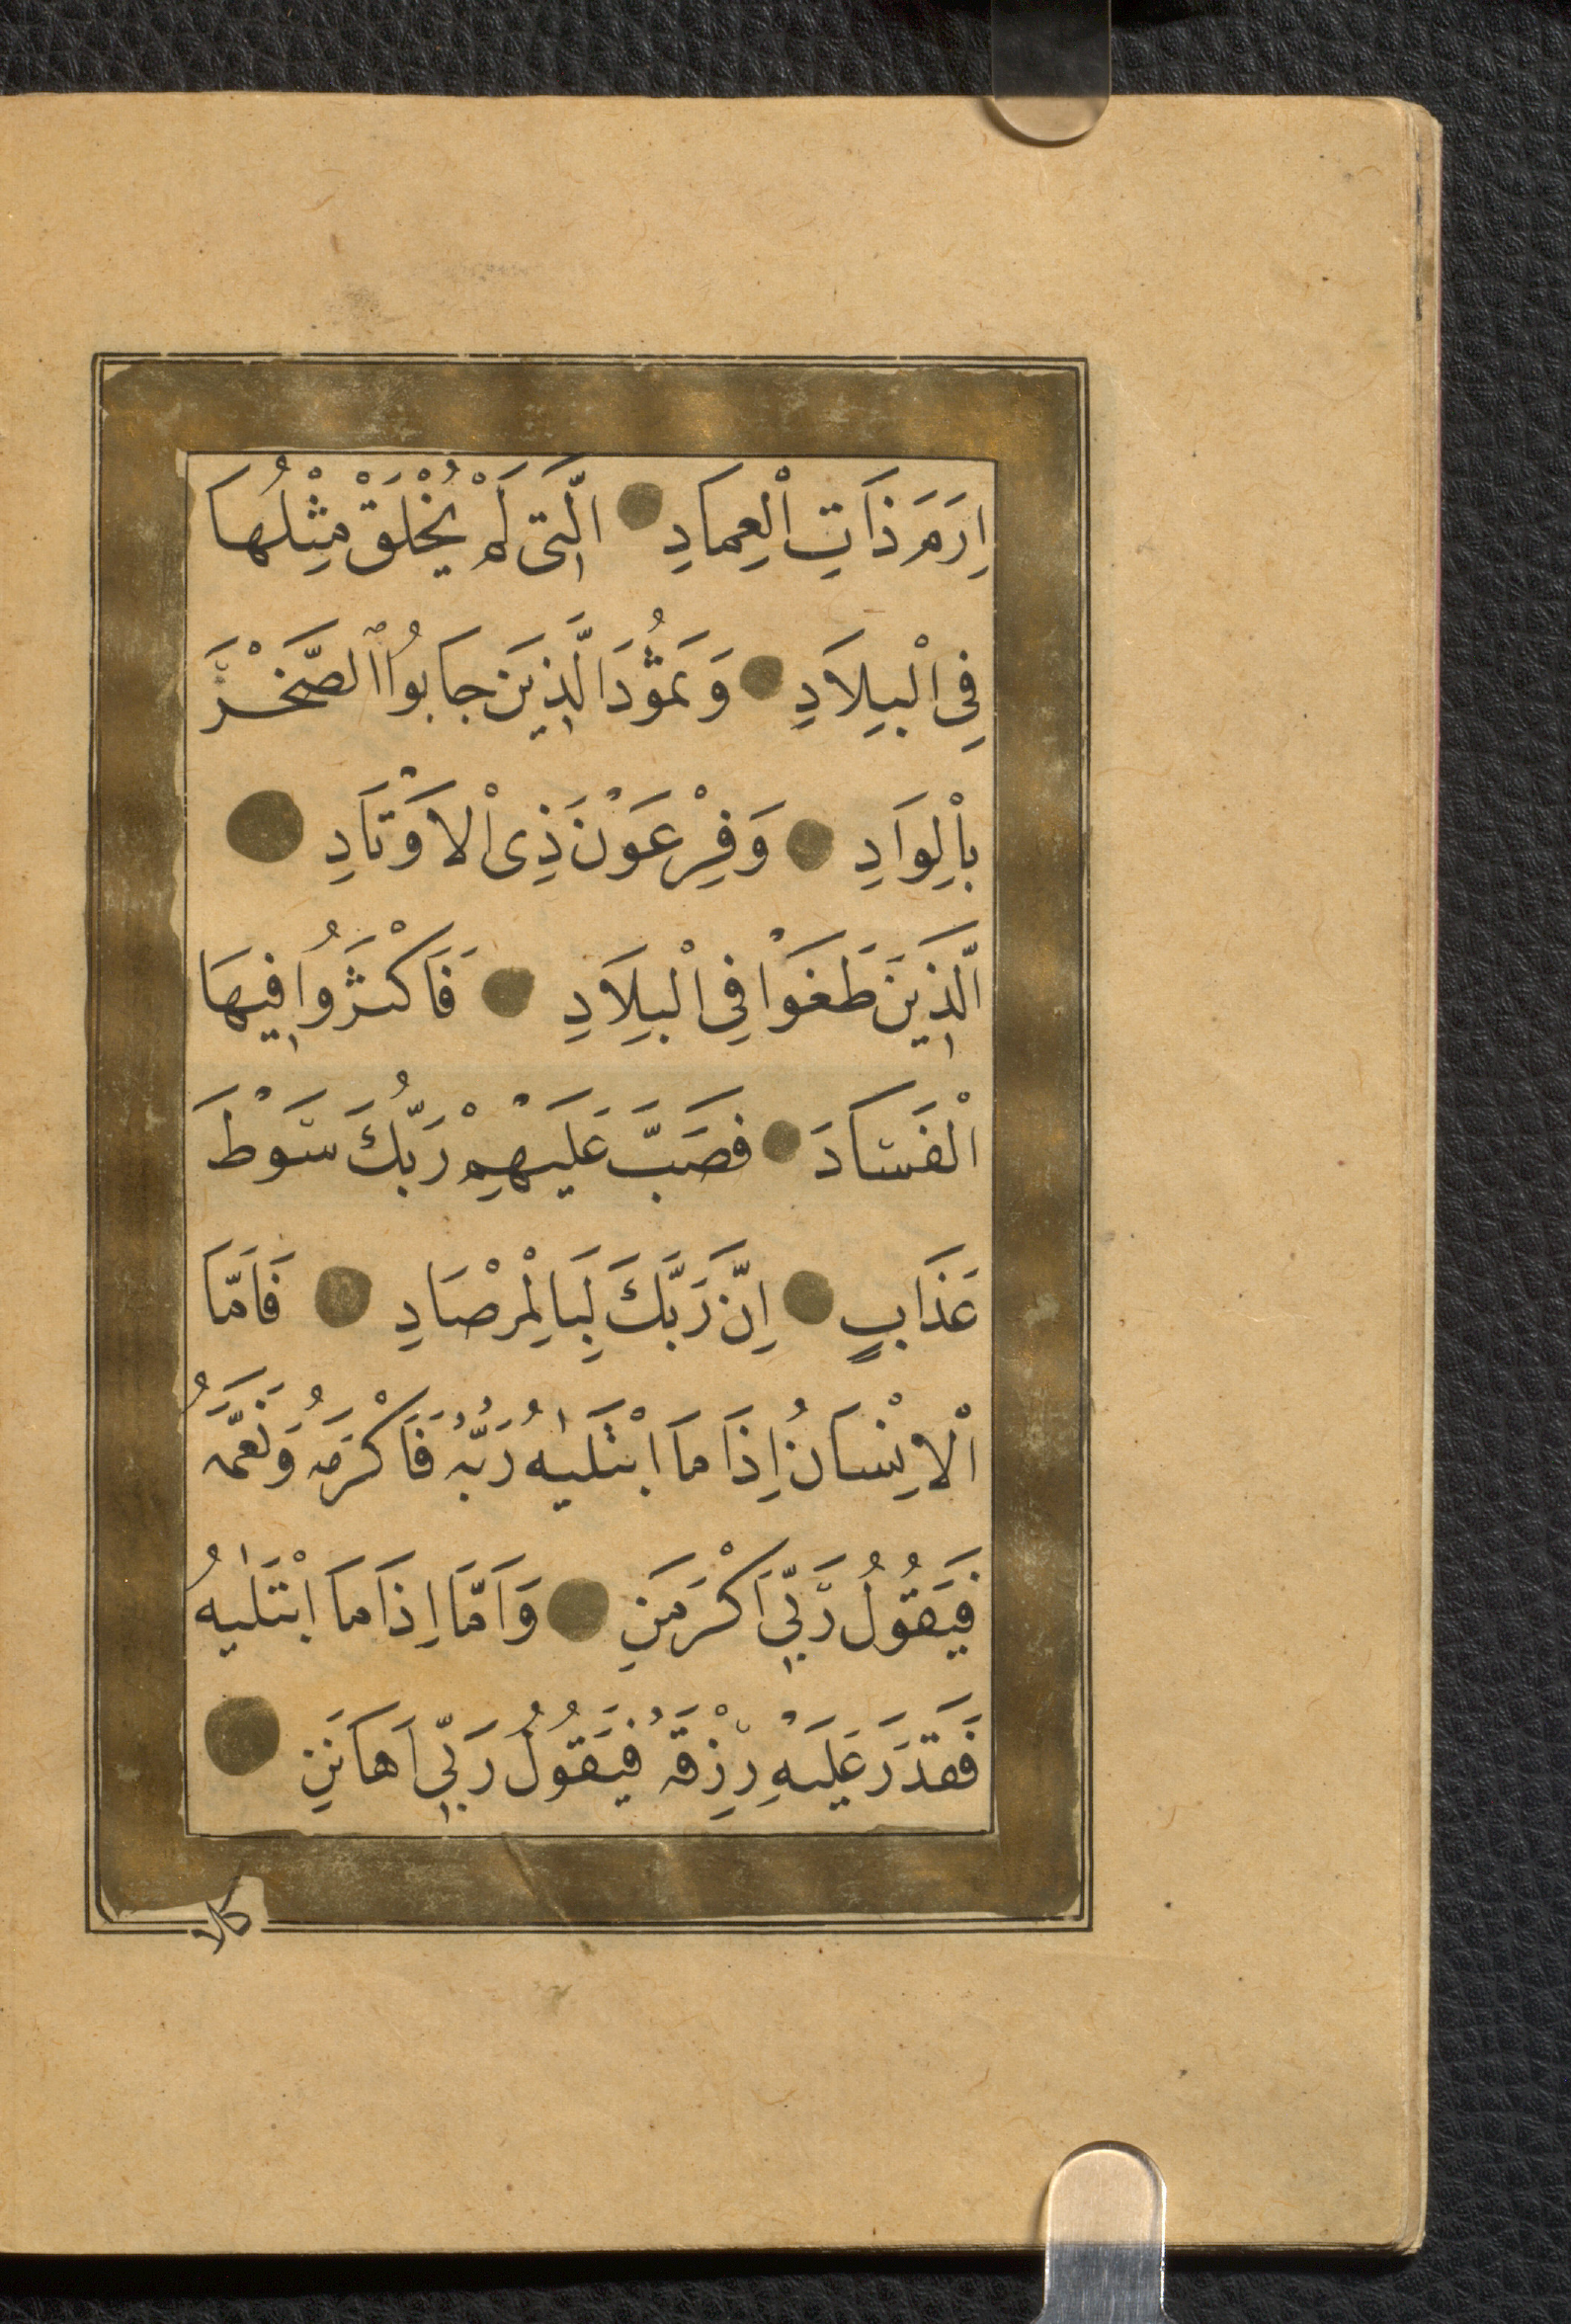 اِرَمَ ذَاتِ الْعِمَادِ الَّتِى لَمْ يُخْلَقْ مِثْلُهَا
فِى الْبِلَادِ وَثَمُوُدَ الَّذِينَ جَابُوُا الصَّخْرَ
بِالْوَادِ وَفِرْعَوْنَ ذِى الْاَوْتَادِ
الَّذِينَ طَغَوْا فِى الْبِلَادِ فَاَكْثَرُوا فِيهَا
الْفَسَادَ فَصَبَّ عَلَيْهِمْ رَبُّكَ سَوْطَ
عَذَابٍ اِنَّ رَبَّكَ لَبِالْمِرْصَادِ فَاَمَّا
الْاِنْسَانُ اِذَا مَا ابْتَلٰيهُ رَبُّهُ فَاَكْرَمَهُ وَنَعَّمَهُ
فَيَقُولُ رَبِّى اَكْرَمَنِ وَاَمَّا اِذَا مَا ابْتَلٰيهُ
فَقَدَرَ عَلَيْهِ رِزْقَهُ فَيَقُولُ رَبِّى اَهَانَنِ
كلا